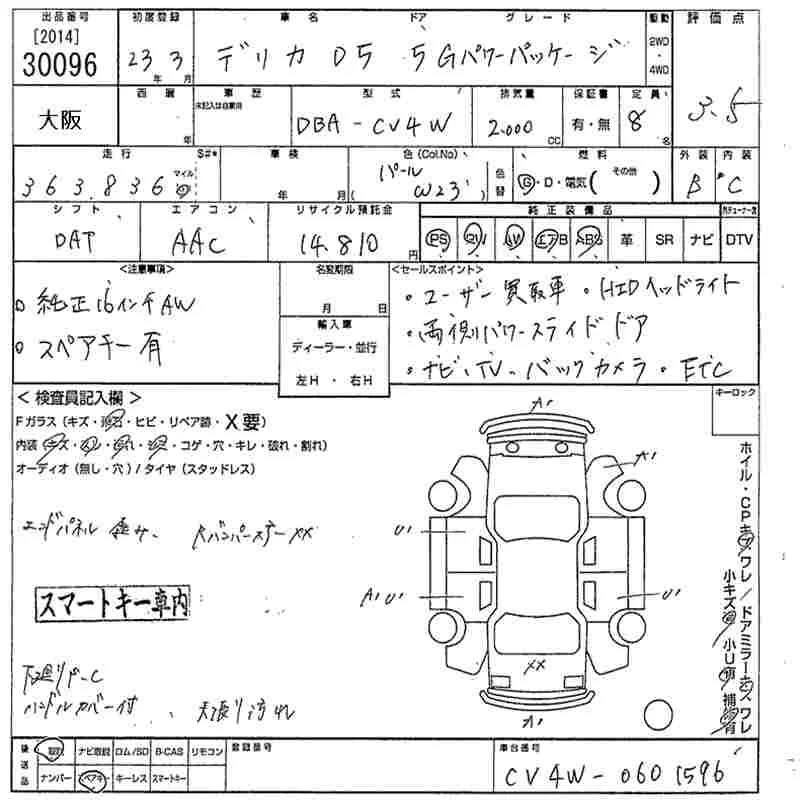 出品番号 初度登録 車名 ドア グレード 駆動 評価点
[2014]
30096
23年 3月 デリカ D5 5 Gパワーパッケージ 2WD・4WD 3.5
大阪 西暦 年 車歴 未記入は自家用 型式 排気量 保証書 定員
DBA-CV4W 2.000 CC 有・無 8名
走行 S#* 車検 色(Col.No) 色替 燃料 外装 内装
363.836 マイル 年 月 パール (W23) G・D・電気(その他) B C
シフト エアコン リサイクル預託金 純正装備品
DAT AAC 14.810円 PS PW AW エアB ABS 革 SR ナビ DTV
<注意事項> 名変期限 <セールスポイント>
純正16インチAW 月 日 ・ユーザー買取車 ・HIDヘッドライト
スペアキー有 輸入車 ・両側パワースライドドア
ディーラー・並行 ・ナビ・TV・バックカメラ ・ETC
左H・右H
<検査員記入欄> キーロック
Fガラス(キズ・飛石・ヒビ・リペア跡・X要)
内装(キズ・汚れ・コゲ・穴・キレ・破れ・割れ)
オーディオ(無し・穴)/タイヤ(スタッドレス)
A' A' U' A' U' U' XX A'
エンドパネル 歪み、 RバンパーステーXX
スマートキー車内
下廻りP-C
ハンドルカバー付、天張り汚れ
ホイル・CPキズ ワレ/ドアミラーキズ ワレ
小キズ 小U 補
後送品 ナビ取説 ロム/SD B-CAS リモコン 登録番号 車台番号
ナンバー スペアキー キーレス スマートキー CV4W-0601596